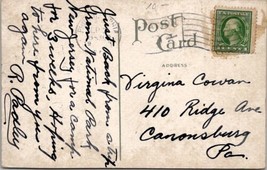 10-
Post Card
ADDRESS
Just Back from a trip
from National Park
for a camp
for 3 weeks, Hoping
to hear from you
again R.
Virginia Cowan
410 Ridge Ave
Canonsburg
Pa.